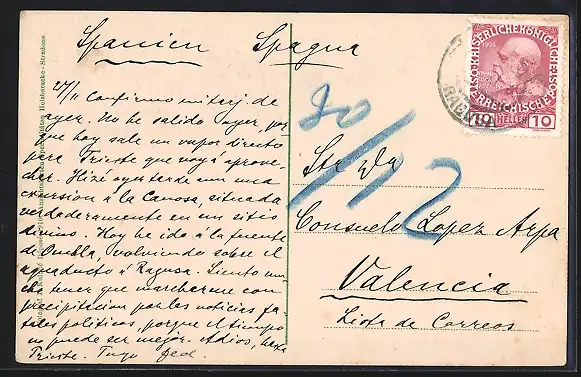 Spanien Spagna
27/11 Confirmo mi tarj. de
ayer. No he salido ayer, por
que hoy sale un vapor directo
para Trieste que voy á aprove-
char. Hize ayer tarde una
excursion á la Canosa, situada
verdaderamente en un sitio
divino. Hoy he ido á la fuente
de Ombla, volviendo sobre el
aqueducto á Ragusa. Siento mu-
cho tener que marcharme con
precipitacion por las noticias fa-
tales politicas, porque el tiempo
no puede ser mejor. Adios, hasta
Trieste. Tuyo
30/12
Srta Da
Consuelo Lopez Arpa
Valencia
Lista de Correos
KAISERLICHE KÖNIGLICHE ÖSTERREICHISCHE POST
1908
10 HELLER 10